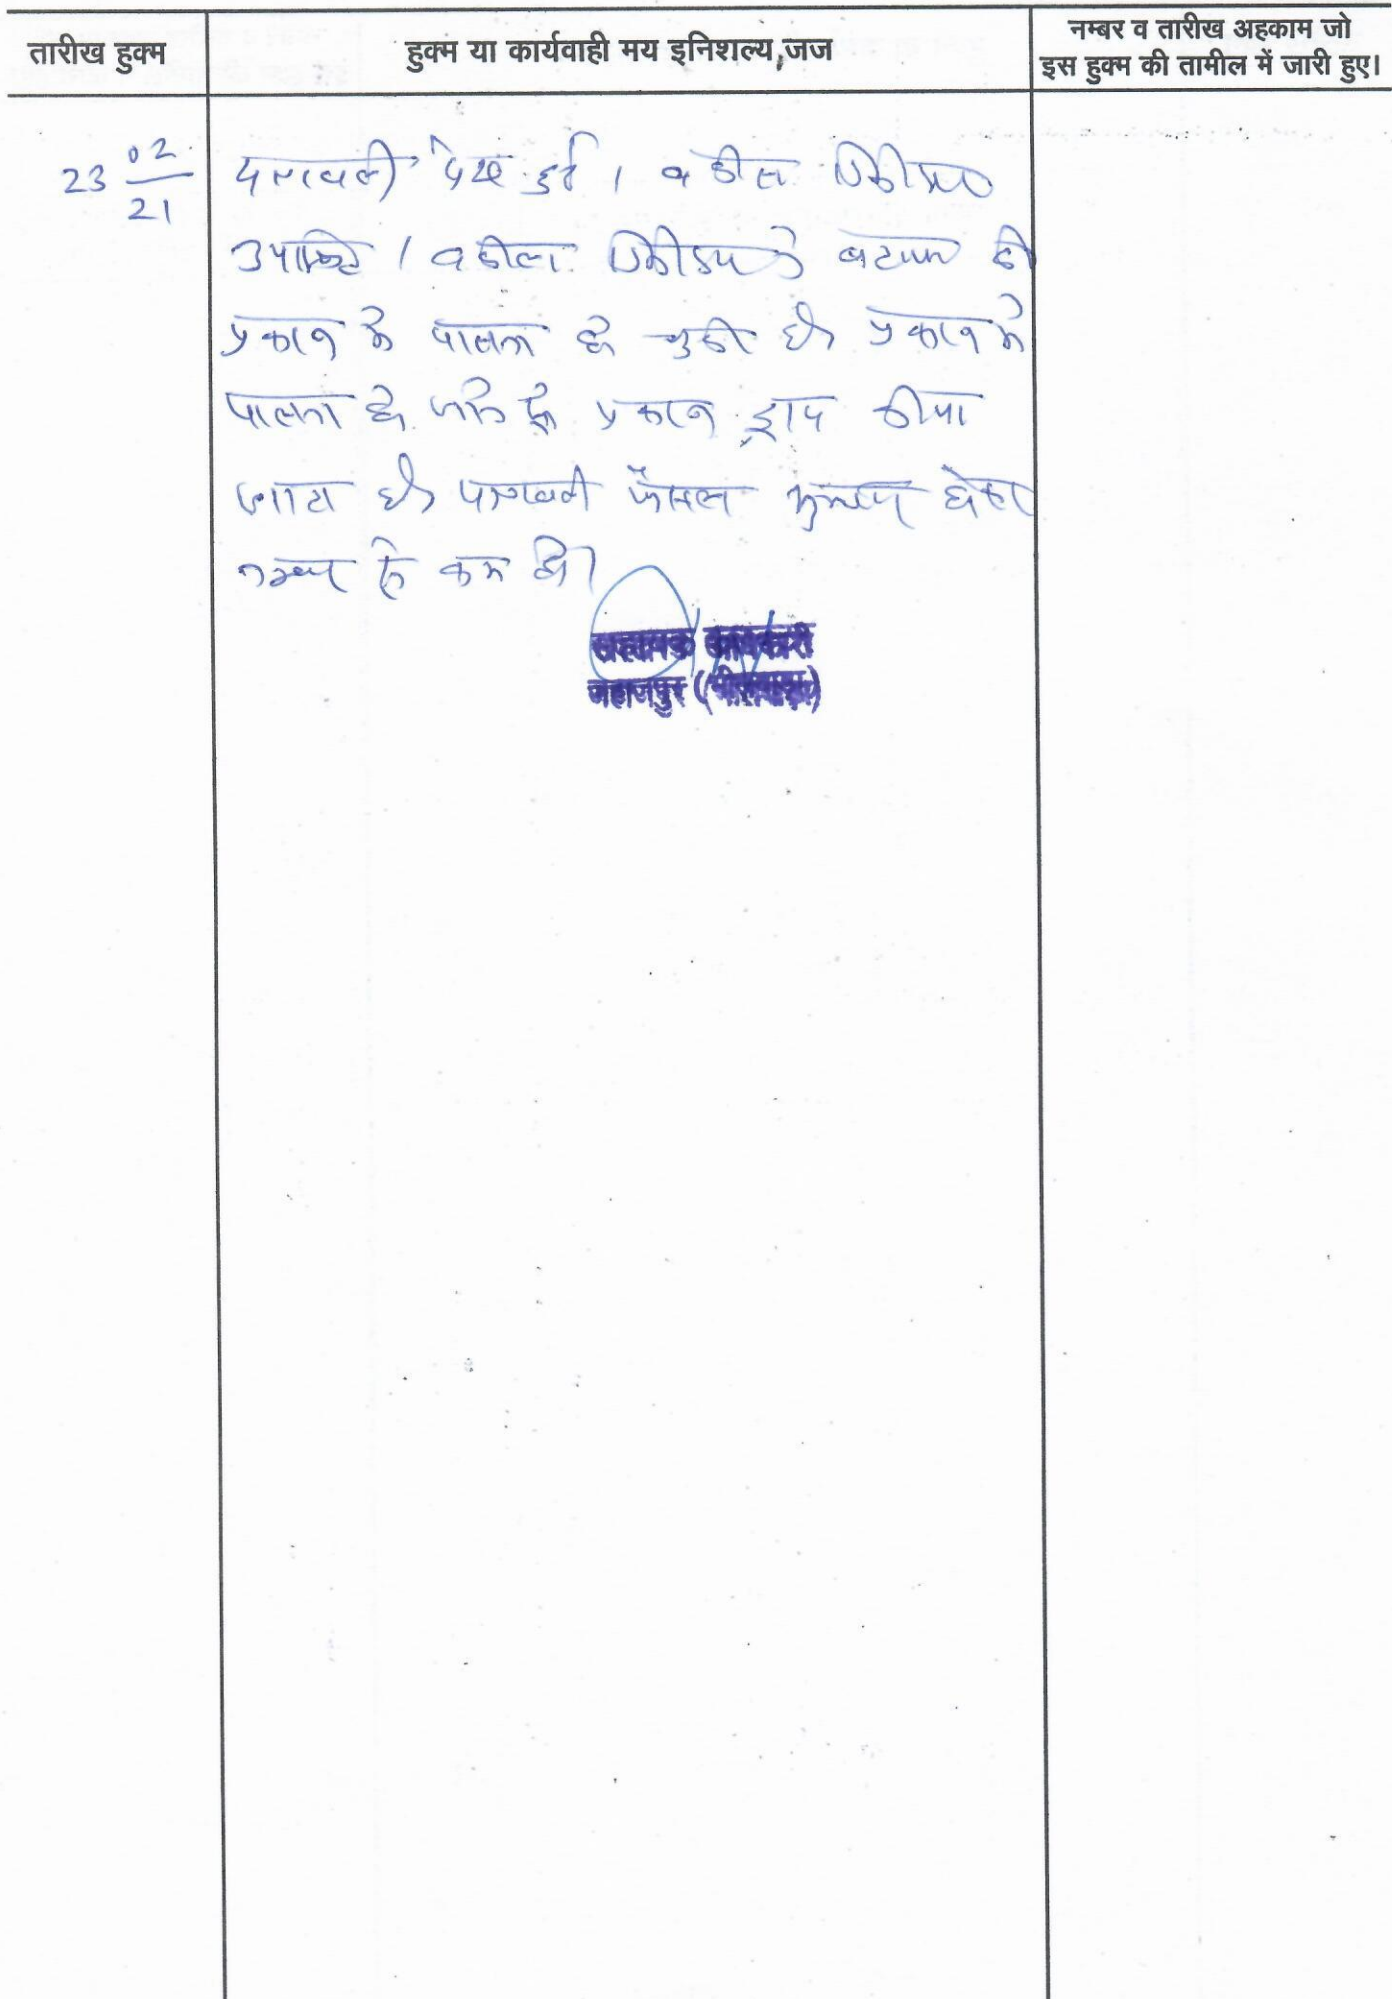 तारीख हुक्म
हुक्म या कार्यवाही मय इनिशल्य जज
नम्बर व तारीख अहकाम जो
इस हुक्म की तामील में जारी हुए।
23 02/21
पत्रावली पेश हुई । वकील
उपस्थित । वकील ने बताया की
प्रकरण मे पालना हो चुकी है प्रकरण मे
पालना हो जाने से प्रकरण ड्राप कीया
जाता है पत्रावली फैसल शुमार होकर
नम्बर से कम हो।
सहायक कलेक्टर
जहाजपुर (भीलवाड़ा)